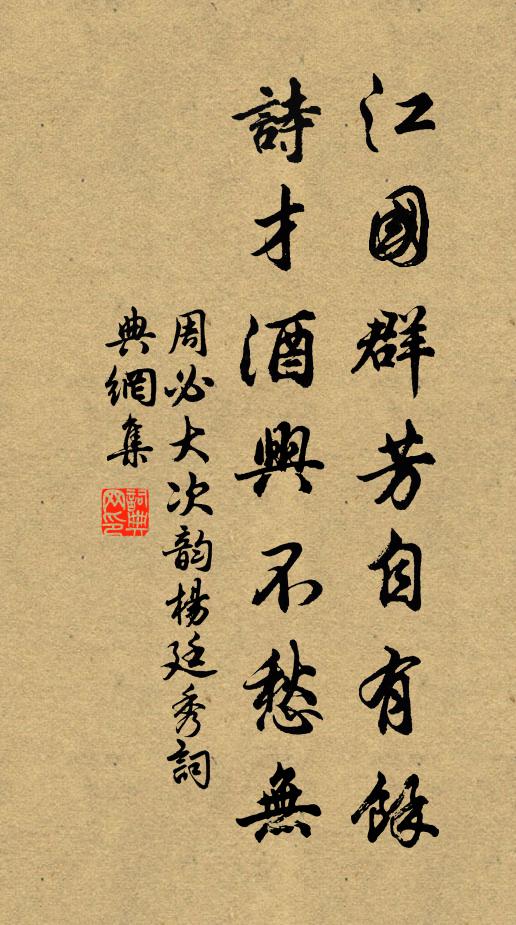 江國群芳自有餘
詩才酒興不愁無
周必大次韵楊廷秀詞
典網集
詞典網印